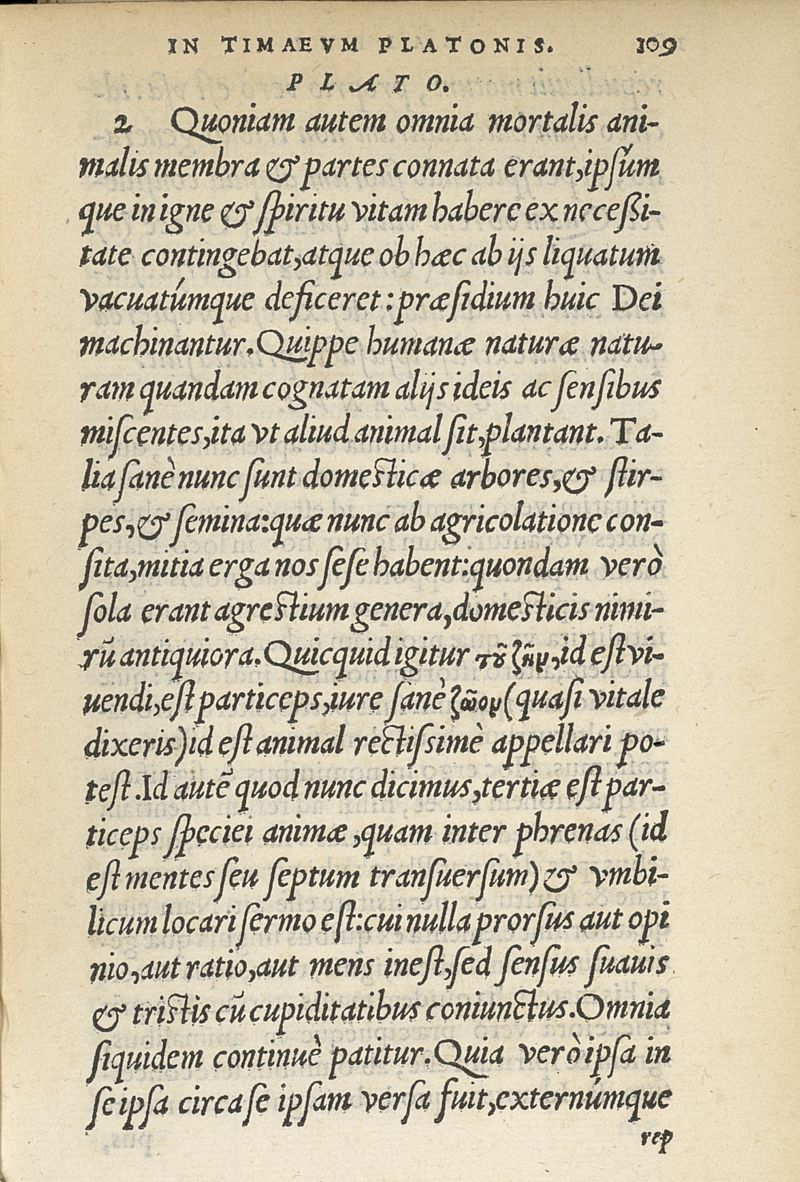 IN TIMAEVM PLATONIS. 109
PLATO.
2 Quoniam autem omnia mortalis ani-
malis membra & partes connata erant, ipsúm
que in igne & spiritu vitam habere ex necessi-
tate contingebat, atque ob hæc ab ijs liquatum
vacuatúmque deficeret: præsidium huic Dei
machinantur. Quippe humanæ naturæ natu-
ram quandam cognatam alijs ideis ac sensibus
miscentes, ita vt aliud animal sit, plantant. Ta-
lia sanè nunc sunt domesticæ arbores, & stir-
pes, & semina: quæ nunc ab agricolatione con-
sita, mitia erga nos sese habent: quondam verò
sola erant agrestium genera, domesticis nimi-
rũ antiquiora. Quicquid igitur τοῦ ζῆν, id est vi-
uendi, est particeps, iure sanè ζῶον (quasi vitale
dixeris) id est animal rectissimè appellari po-
test. Id autẽ quod nunc dicimus, tertiæ est par-
ticeps speciei animæ, quam inter phrenas (id
est mentes seu septum transuersum) & vmbi-
licum locari sermo est: cui nulla prorsus aut opi
nio, aut ratio, aut mens inest, sed sensus suauis
& tristis cũ cupiditatibus coniunctus. Omnia
siquidem continuè patitur. Quia verò ipsa in
se ipsa circa se ipsam versa fuit, externúmque
rep